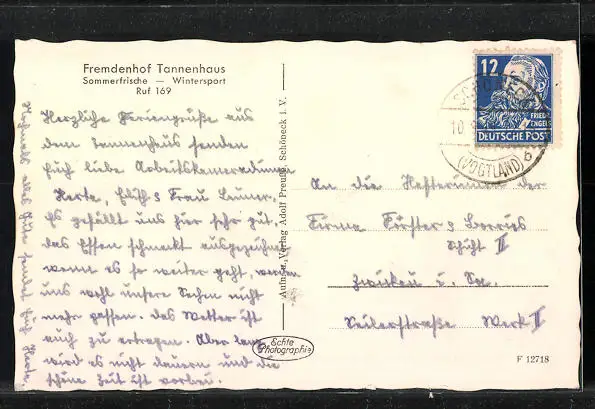 Fremdenhof Tannenhaus
Sommerfrische — Wintersport
Ruf 169
Herzliche Feriengrüße aus
dem Tannenhaus senden
Euch liebe Arbeitskameradinnen
Herta, Edith & Frau
Es gefällt uns hier sehr gut,
das Essen schmeckt ausgezeichnet
wenn es so weiter geht, werden
uns wohl unsere Sachen nicht
mehr passen. Das Wetter ist
auch zu ertragen. Aber lang
wird es nicht dauern und die
schöne Zeit ist vorbei.
Aufn. u. Verlag Adolf Preuß, Schöneck i. V.
Echte
Photographie
12
FRIEDR.
ENGELS
DEUTSCHE POST
SCHÖNECK
10
(VOGTLAND)
b
An die Hefterinnen der
Firma Förster & Borries
Schicht II
Zwickau i. Sa.
Seilerstraße Werk II
F 12718